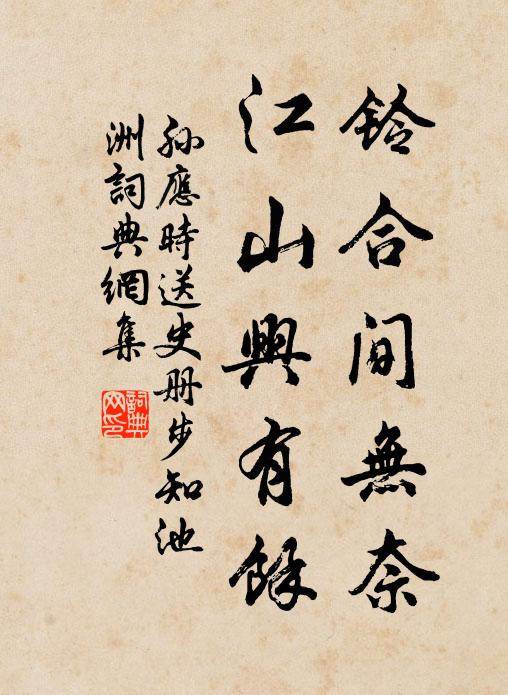 鈴合間無奈
江山興有餘
孙應時送史册步知池
洲詞典網集
詞典网印